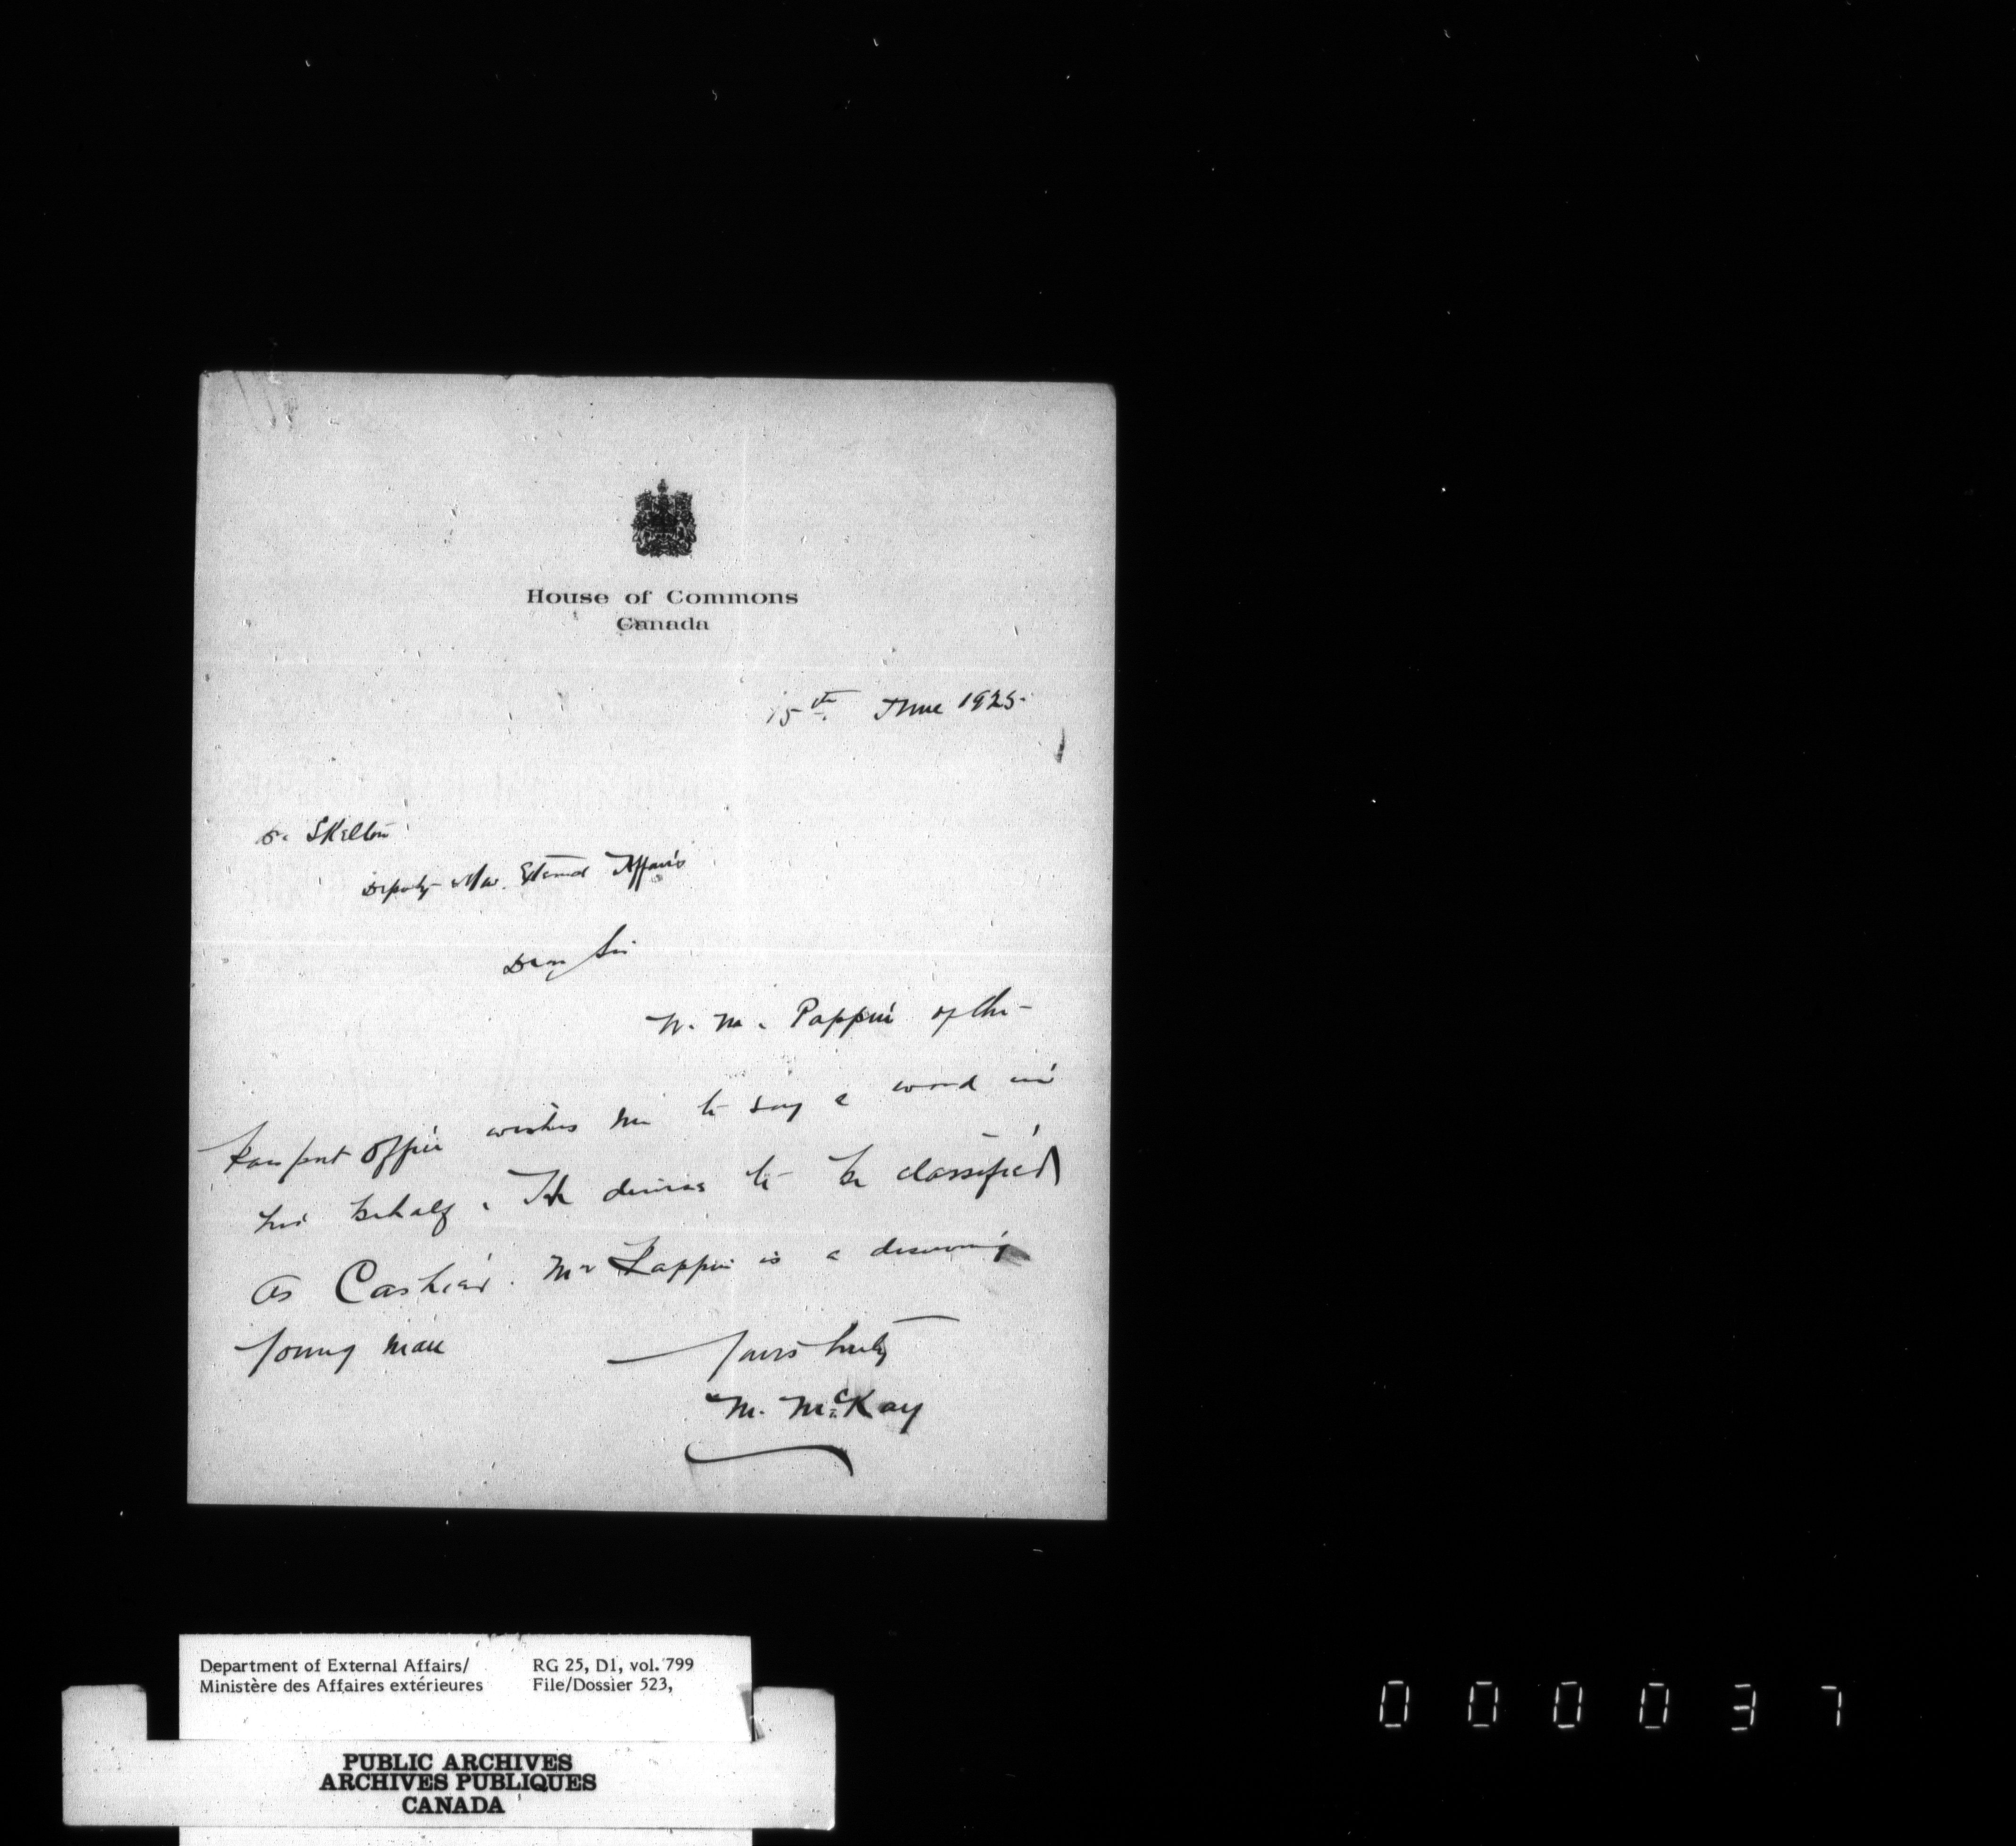 House of Commons
Canada
15th June 1925
Dr. Skelton
Deputy Min. External Affairs
Dear Sir
W. M. Pappin of the
Passport Office wishes me to say a word in
his behalf. He desires to be classified
as Cashier. Mr Pappin is a deserving
young man
Yours truly
M. McKay
Department of External Affairs/ RG 25, D1, vol. 799
Ministère des Affaires extérieures File/Dossier 523,
PUBLIC ARCHIVES
ARCHIVES PUBLIQUES
CANADA
000037